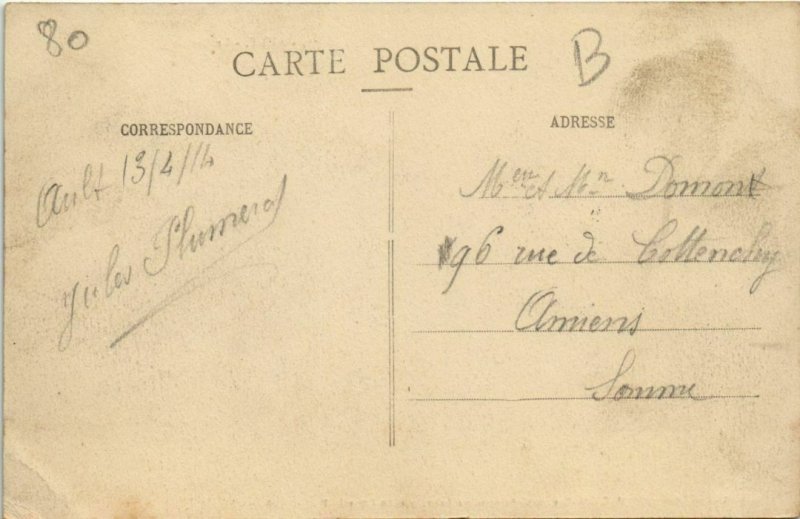 80
B
CARTE POSTALE
CORRESPONDANCE
Ault 13/4/14
Jules
ADRESSE
et Domont
96 rue de Cottenchy
Amiens
Somme